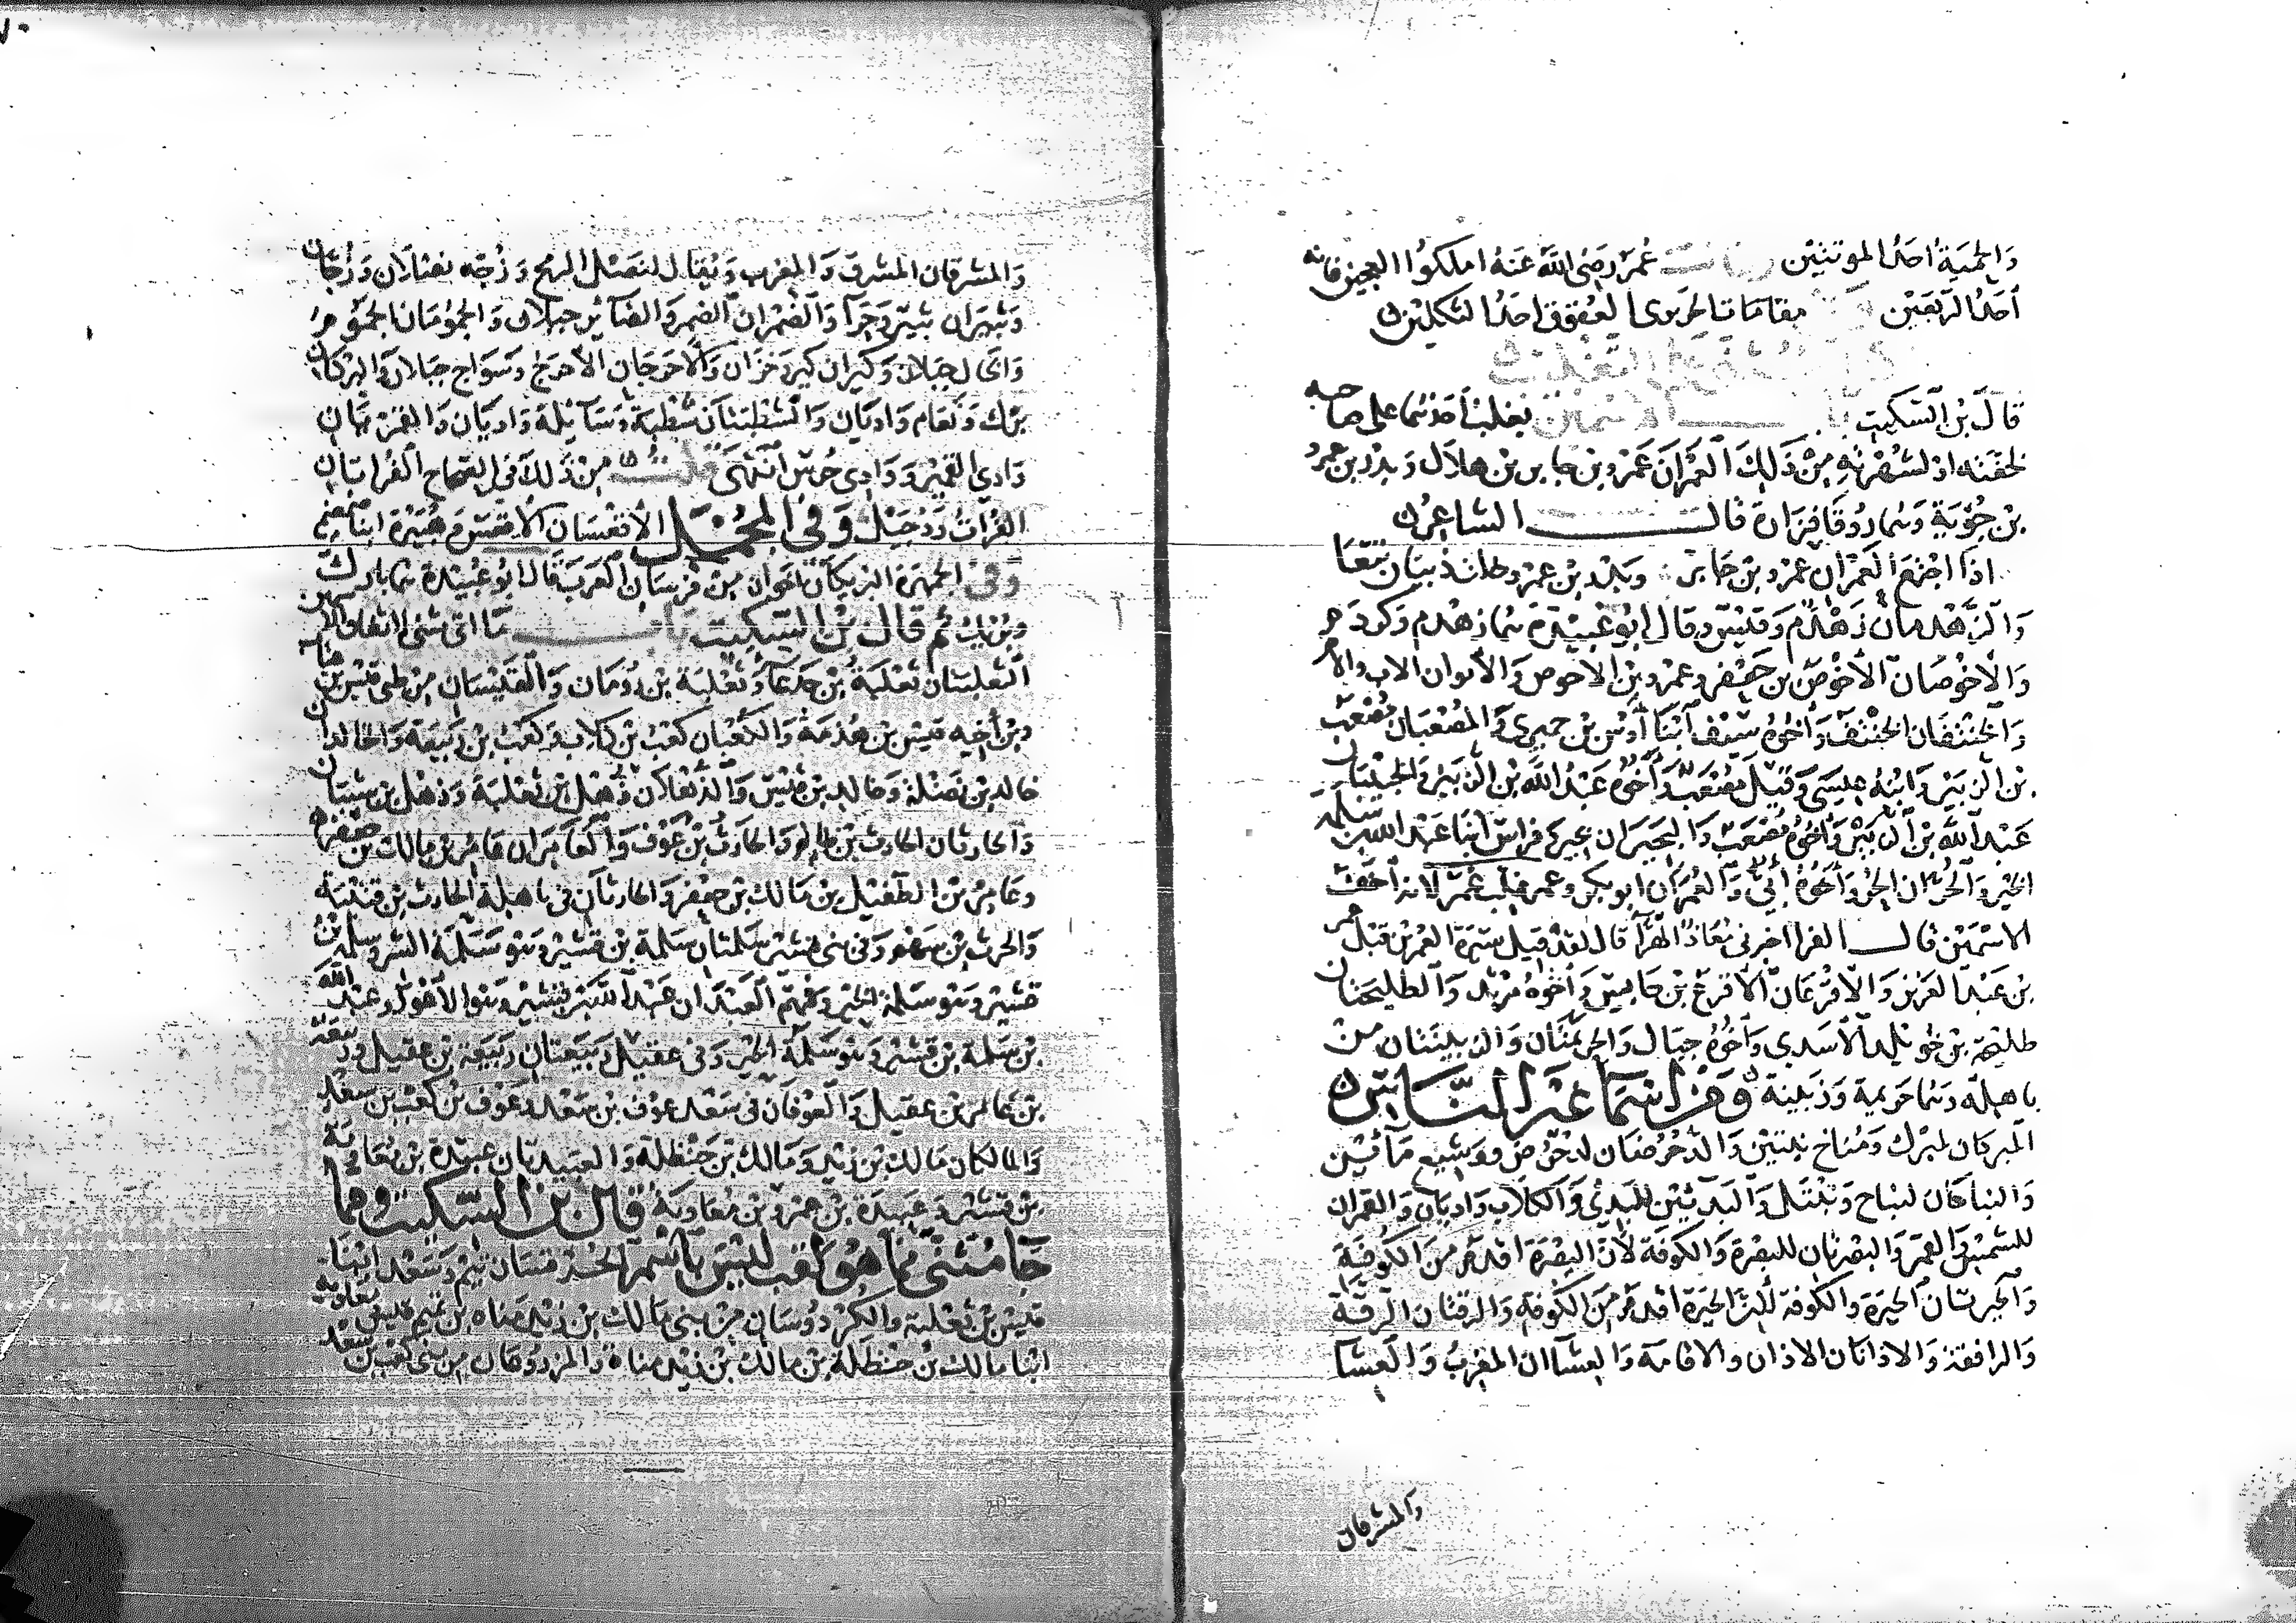 والحمية احد الموتتين عمر رضي الله عنه املكوا العجين فانه
احد الريعين مقامات الحريري العقوق احد الثكلين
قال بن السكيت يغلب احدهما على صاحبه
لخفته او لشهرته من ذلك العمران عمرو بن جابر بن هلال وبدر بن عمرو
بن جوية وهما روقا فزارة قال الشاعر
اذا اجتمع العمران عمرو بن جابر وبدر بن عمرو خلت ذبيان تبعا
والزهدمان زهدم وقيس وقال ابو عبيدة هما زهدم وكردم
والاخوصان الاخوص بن جعفر وعمرو بن الاحوص والابوان الاب والام
والحنتفان الحنتف واخوه سيف ابنا اوس بن حميري والمصعبان مصعب
بن الزبير وابنه عيسى وقيل مصعب واخوه عبد الله بن الزبير والخبيبان
عبد الله بن الزبير واخوه مصعب والبحيران بحير وفراس ابنا عبد الله بن سلمة
الخير والحران الحر واخوه ابي والعمران ابو بكر وعمر فغلب عمر لانه اخف
الاسمين قال الفرا اخبرني معاذ الهرا قال لقد قيل سيرة العمرين قبل عمر
بن عبد العزيز والاقرعان الاقرع بن حابس واخوه مرثد والطليحتان
طليحة بن خويلد الاسدي واخوه حبال والحزيمتان والزبينتان من
باهلة وهما حزيمة وزبينة ومن اسما غير الناس
المبركان لمبرك ومناخ نقبين والدحرضان لدحرض ووشيع مآئين
والنباجان لنباج وثيتل والبديئين للبدي والكلاب واديان والقمران
للشمس والقمر والبصرتان للبصرة والكوفة لان البصرة اقدم من الكوفة
والحيرتان الحيرة والكوفة لان الحيرة اقدم من الكوفة والرقتان الرقة
والرافقة والاذانان الاذان والاقامة والعشاان المغرب والعشا
والمشرقان
والمشرقان المشرق والمغرب ويقال لنصل الرمح وزجه نصلان وزجان
وثبيران ثبير وحرآ والضمران الضمر والضاين جبلان والجمومان الجموم
والحال جبلان وكيران كير وخزان والاخرجان الاخرج وسواج جبلان والبركان
برك ونعام واديان والشطبتان شطبة وسآيلة واديان والقمريان
وادي القمير ووادي حرس انتهى قلت من ذلك في الصحاح الفراتان
الفرات ودجيل وفي المجمل الاقعسان الاقعس وهبيرة ابنا ضمضم
وفي الجمهرة البريكان اخوان من فرسان العرب قال ابو عبيدة هما بارك
وبريك ثم قال بن السكيت ما اتى مثنى لاتفاق الاسمين
الثعلبتان ثعلبة بن جدعا وثعلبة بن رومان والقيسان من طي قيس بن عتاب
وبن اخيه قيس بن هذمة والكعبان كعب بن كلاب وكعب بن ربيعة والخالدان
خالد بن نضلة وخالد بن قيس والذهلان ذهل بن ثعلبة وذهل بن شيبان
والحارثان الحارث بن ظالم والحارث بن عوف والعامران عامر بن مالك بن جعفر
وعامر بن الطفيل بن مالك بن جعفر والحارثان في باهلة الحارث بن قتيبة
والحرث بن سهم وفي بني قشير سلمتان سلمة بن قشير وهو سلمة الشر وسلمة بن
قشير وهو سلمة الخير وفيهم العبدان عبد الله بن قشير وهو الاعور وعبد الله
بن سلمة بن قشير وهو سلمة الخير وفي عقيل ربيعتان ربيعة بن عقيل وربيعة
بن عامر بن عقيل والعوفان في سعد عوف بن سعد وعوف بن كعب بن سعد
والمالكان مالك بن زيد ومالك بن حنظلة والعبيدتان عبيدة بن معاوية
بن قشير وعبيدة بن عمرو بن معاوية قال بن السكيت ومما
جا مثنى مما هو لقب ليس باسم الحرقتان تيم وسعد ابنا
قيس بن ثعلبة والكردوسان من بني مالك بن زيد مناة بن تميم قيس ومعاوية
ابنا مالك بن حنظلة بن مالك بن زيد مناة والمزروعان من بني كعب بن سعد